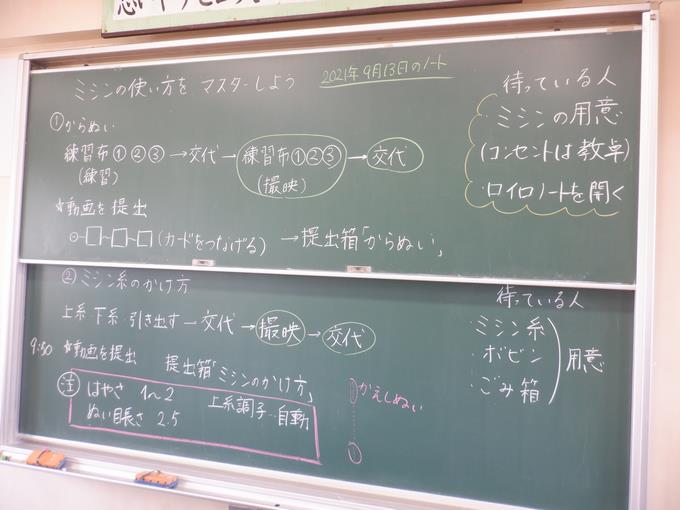 ミシンの使い方を マスターしよう
2021年9月13日のノート
①からぬい
練習布①②③ → 交代 → 練習布①②③ → 交代
(練習) (撮映)
☆動画を提出
(カードをつなげる) → 提出箱「からぬい」
待っている人
・ミシンの用意
(コンセントは教卓)
・ロイロノートを開く
② ミシン糸のかけ方
上糸 下糸 引き出す → 交代 → 撮映 → 交代
9:30 ☆動画を提出 提出箱「ミシンのかけ方」
注 はやさ 1〜2 上糸調子…自動
ぬい目長さ 2.5
かえしぬい
待っている人
・ミシン糸
・ボビン
・ごみ箱
用意